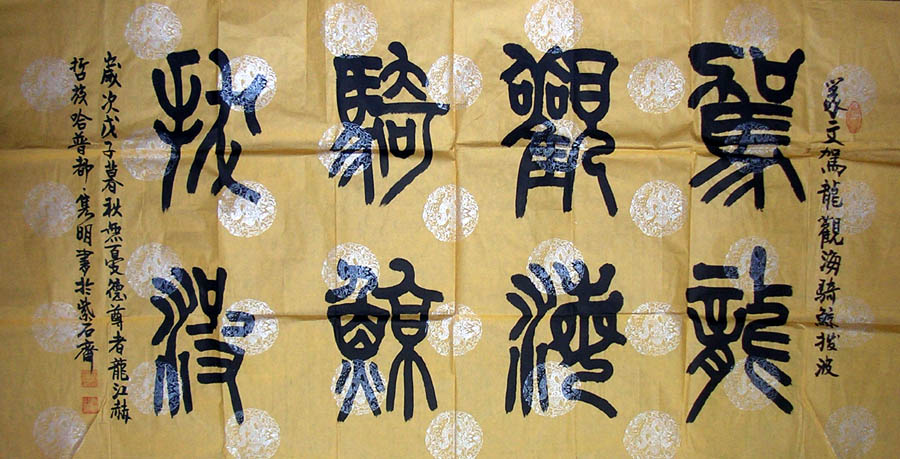 篆文駕龍觀海騎鯨拔波
駕龍
觀海
騎鯨
拔波
歲次戊子暮秋無憂德尊者龍江赫
哲族哈普都·隽明書於紫石齋